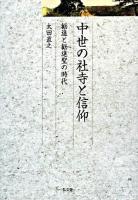 中世の社寺と信仰
勧進と勧進聖の時代
太田直之